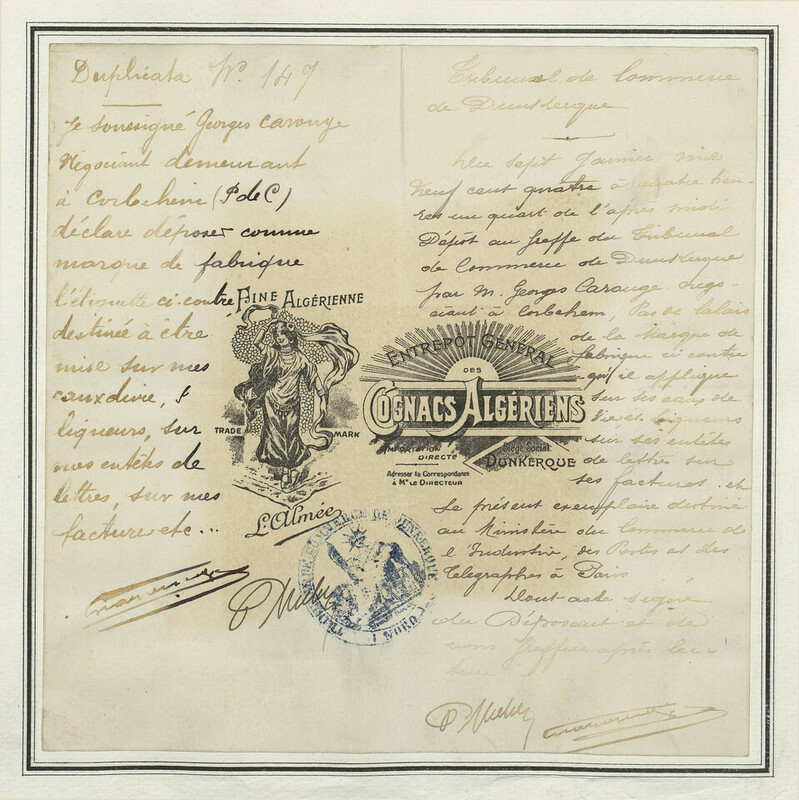 Duplicata N°. 147
Je soussigné Georges Carouge
Négociant demeurant
à Corbehem (P de C)
déclare déposer comme
marque de fabrique
l'étiquette ci-contre
destinée à être
mise sur mes
eaux de vie,
liqueurs, sur
mes entêtes de
lettres, sur mes
facture etc...
FINE ALGÉRIENNE
TRADE MARK
L'Almée
ENTREPOT GÉNÉRAL
DES
COGNACS ALGÉRIENS
IMPORTATION
DIRECTE
Siège Social
DUNKERQUE
Adresser la Correspondance
à Mr LE DIRECTEUR
TRIBUNAL DE COMMERCE DE DUNKERQUE
NORD
Tribunal de Commerce
de Dunkerque
Du sept Janvier mil
neuf cent quatre à quatre heu-
res un quart de l'après midi
Dépôt au Greffe du Tribunal
de Commerce de Dunkerque
par M. Georges Carouge négo-
ciant à Corbehem, Pas de Calais
de la Marque de
fabrique ci contre
qu'il applique
sur ses eaux de
vie et liqueurs
sur ses entêtes
de lettres sur
ses factures. et
Le présent exemplaire destiné
au Ministère du Commerce de
l'Industrie, des Postes et des
Télégraphes à Paris
Dont acte signé
du Déposant et de
nous Greffier après lec-
ture